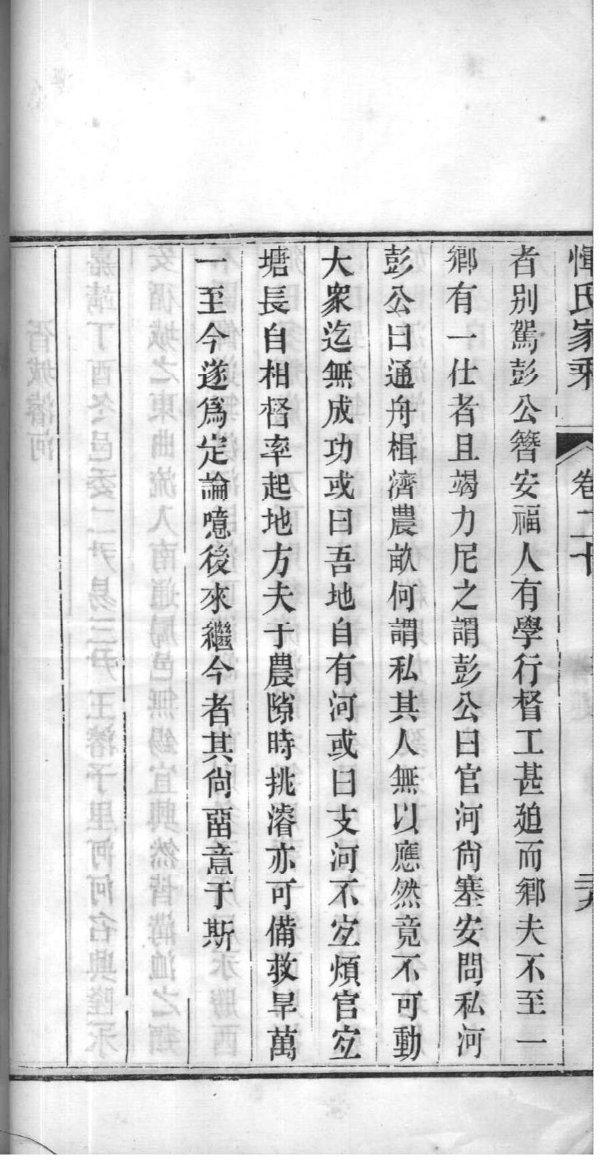 惲氏家乘 卷二十 二九
者别駕彭公簪安福人有學行督工甚廹而鄉夫不至一
鄉有一仕者且竭力尼之謂彭公曰官河尙塞安問私河
彭公曰通舟楫濟農畝何謂私其人無以應然竟不可動
大衆迄無成功或曰吾地自有河或曰支河不宐煩官宐
塘長自相督率起地方夫于農隙時挑濬亦可備救旱萬
一至今遂爲定論噫後來繼今者其尙畱意于斯